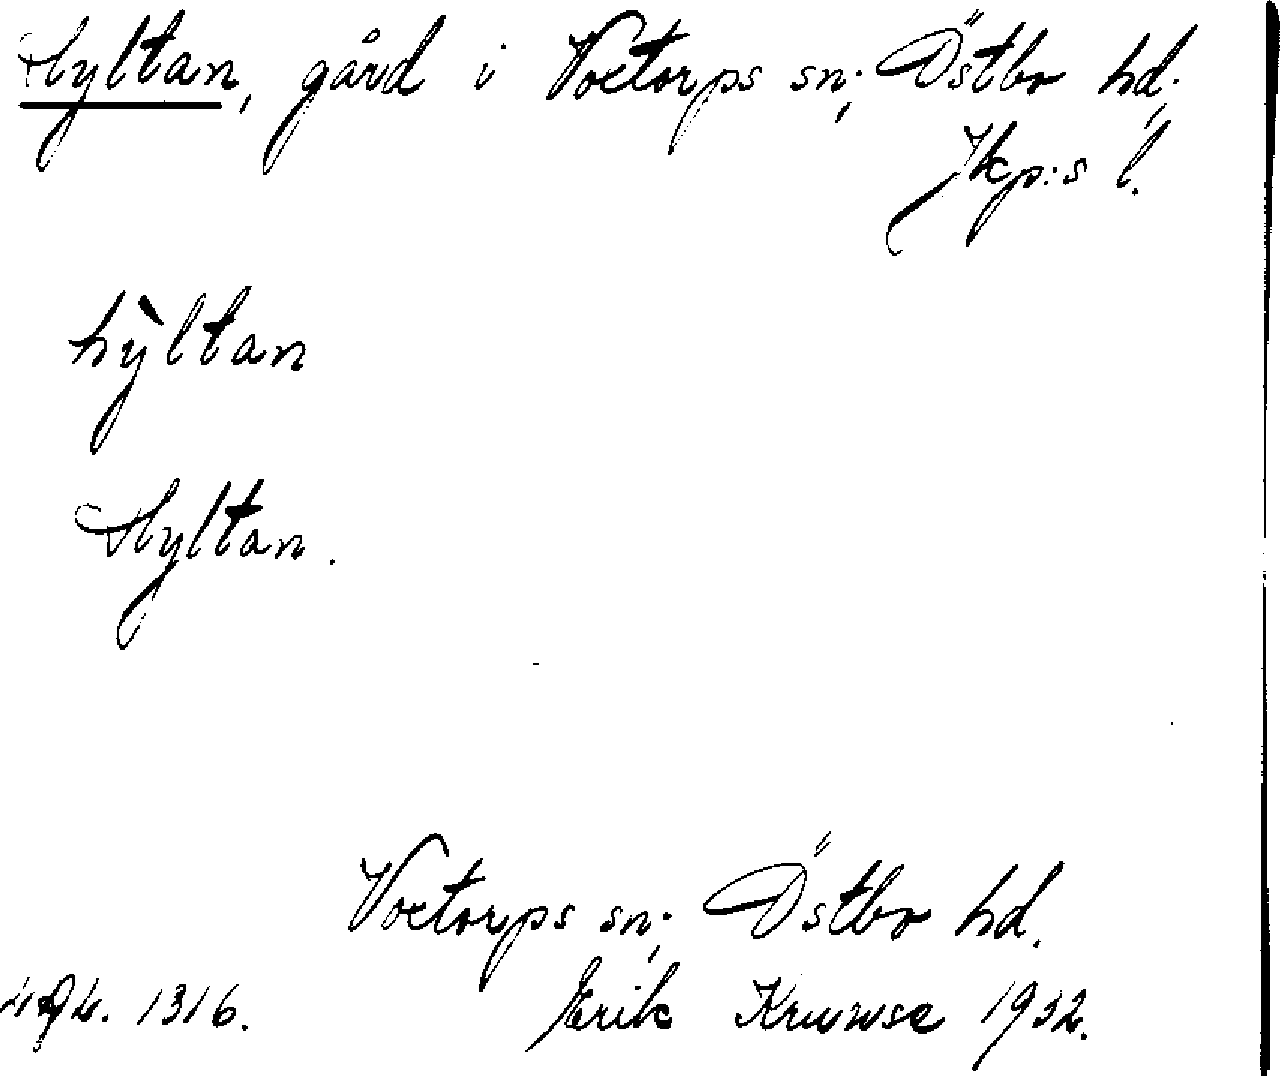 Hyltan, gård i Voxtorps sn; Östbo hd;
Jkp:s l.
hỳltan
Hyltan.
Voxtorps sn; Östbo hd.
1316. Erik 1932.